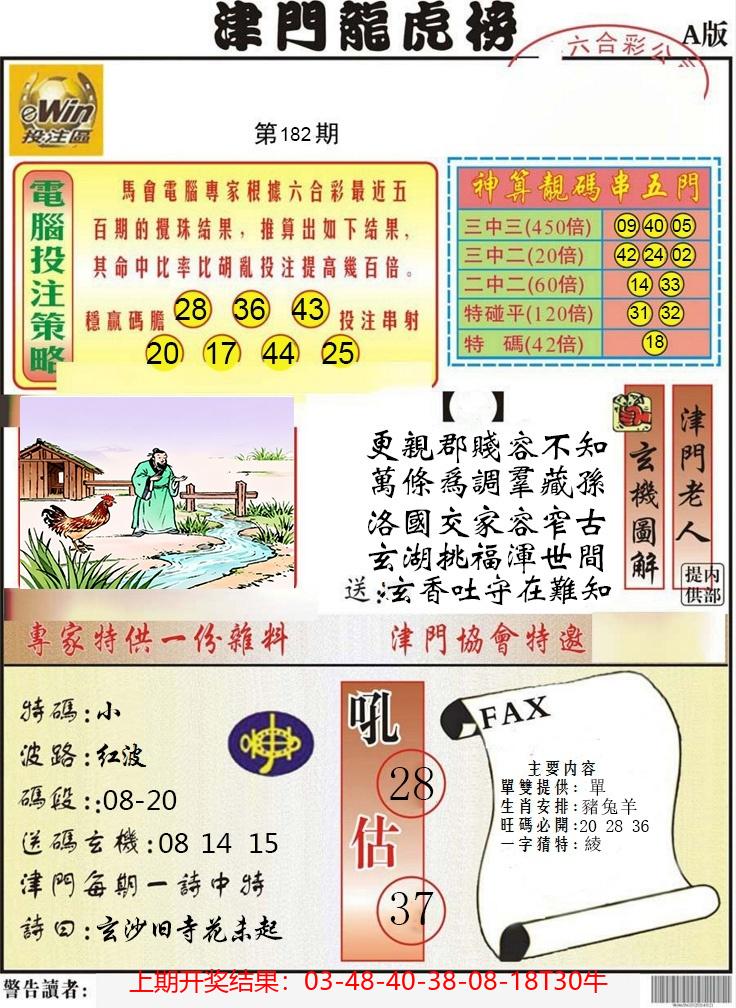 津門龍虎榜
A版
六合彩公
eWin
投注區
第182期
電腦投注策略
馬會電腦專家根據六合彩最近五
百期的攪珠结果，推算出如下结果，
其命中比率比胡亂投注提高幾百倍。
穩贏碼膽 28 36 43 投注串射
20 17 44 25
神算靚碼串五門
三中三(450倍) 09 40 05
三中二(20倍) 42 24 02
二中二(60倍) 14 33
特碰平(120倍) 31 32
特 碼(42倍) 18
【 】
更親郡賤容不知
萬條為調羣藏孫
洛國交家容窄古
玄湖挑福渾世間
送:玄香吐守在難知
玄機圖解
津門老人
内部提供
專家特供一份雜料
津門協會特邀
特碼:小
波路:红波
碼段::08-20
送碼玄機:08 14 15
津門每期一詩中特
詩曰:玄沙旧寺花未起
吼
28
估
37
FAX
主要内容
單雙提供: 單
生肖安排:豬兔羊
旺码必開:20 28 36
一字猜特:綾
警告讀者:
上期开奖结果：03-48-40-38-08-18T30牛